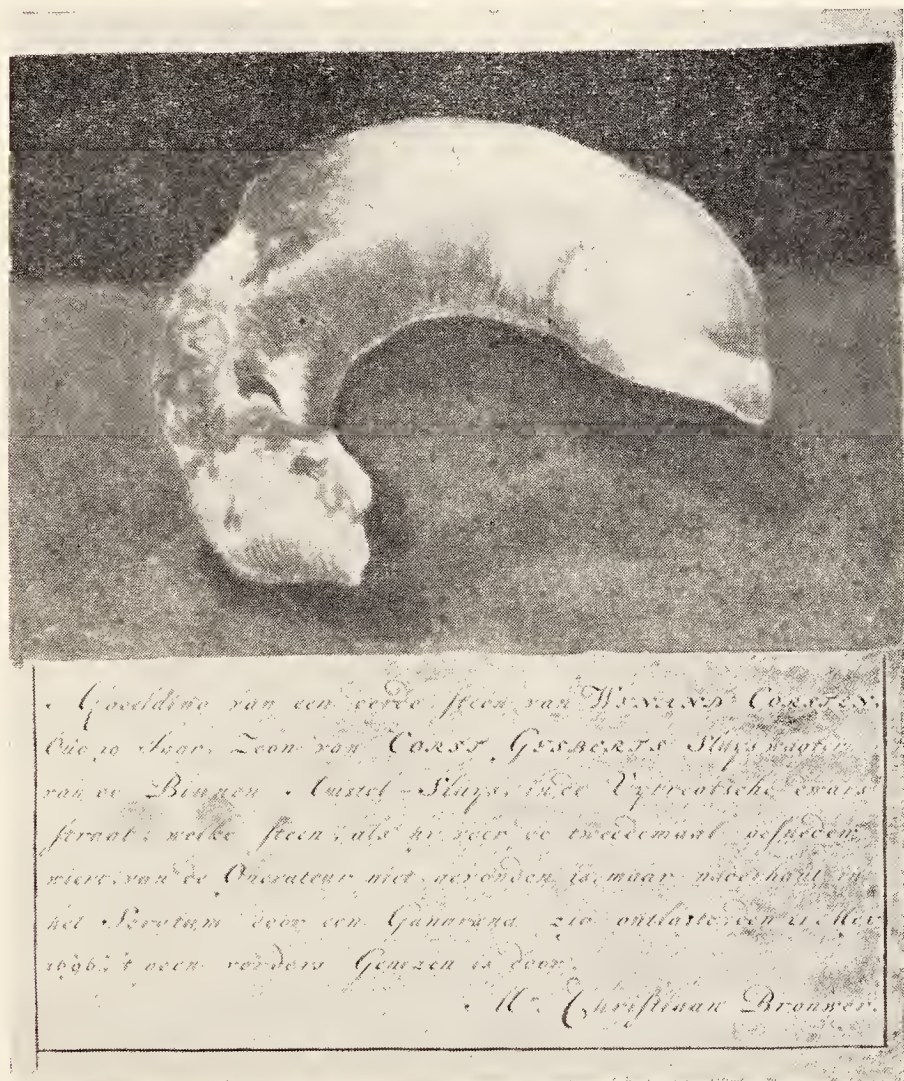 Afbeelding van een eerste steen van WYNAND CORSTEN,
Oud 19 Jaar, Zoon van CORST GYSBERTS Sluyswagter
van de Binnen Amstel-Sluys, in de Uytregtsche dwars
straat; welke steen, als hy voor de tweedemaal gesneden
wiert, van de Operateur niet gevonden is, maar naderhant in
het Scrotum door een Gangrena zig ontlaste, den 21 Mey
1696, 't geen vorders Genezen is door,
Mr. Christiaan Brouwer.